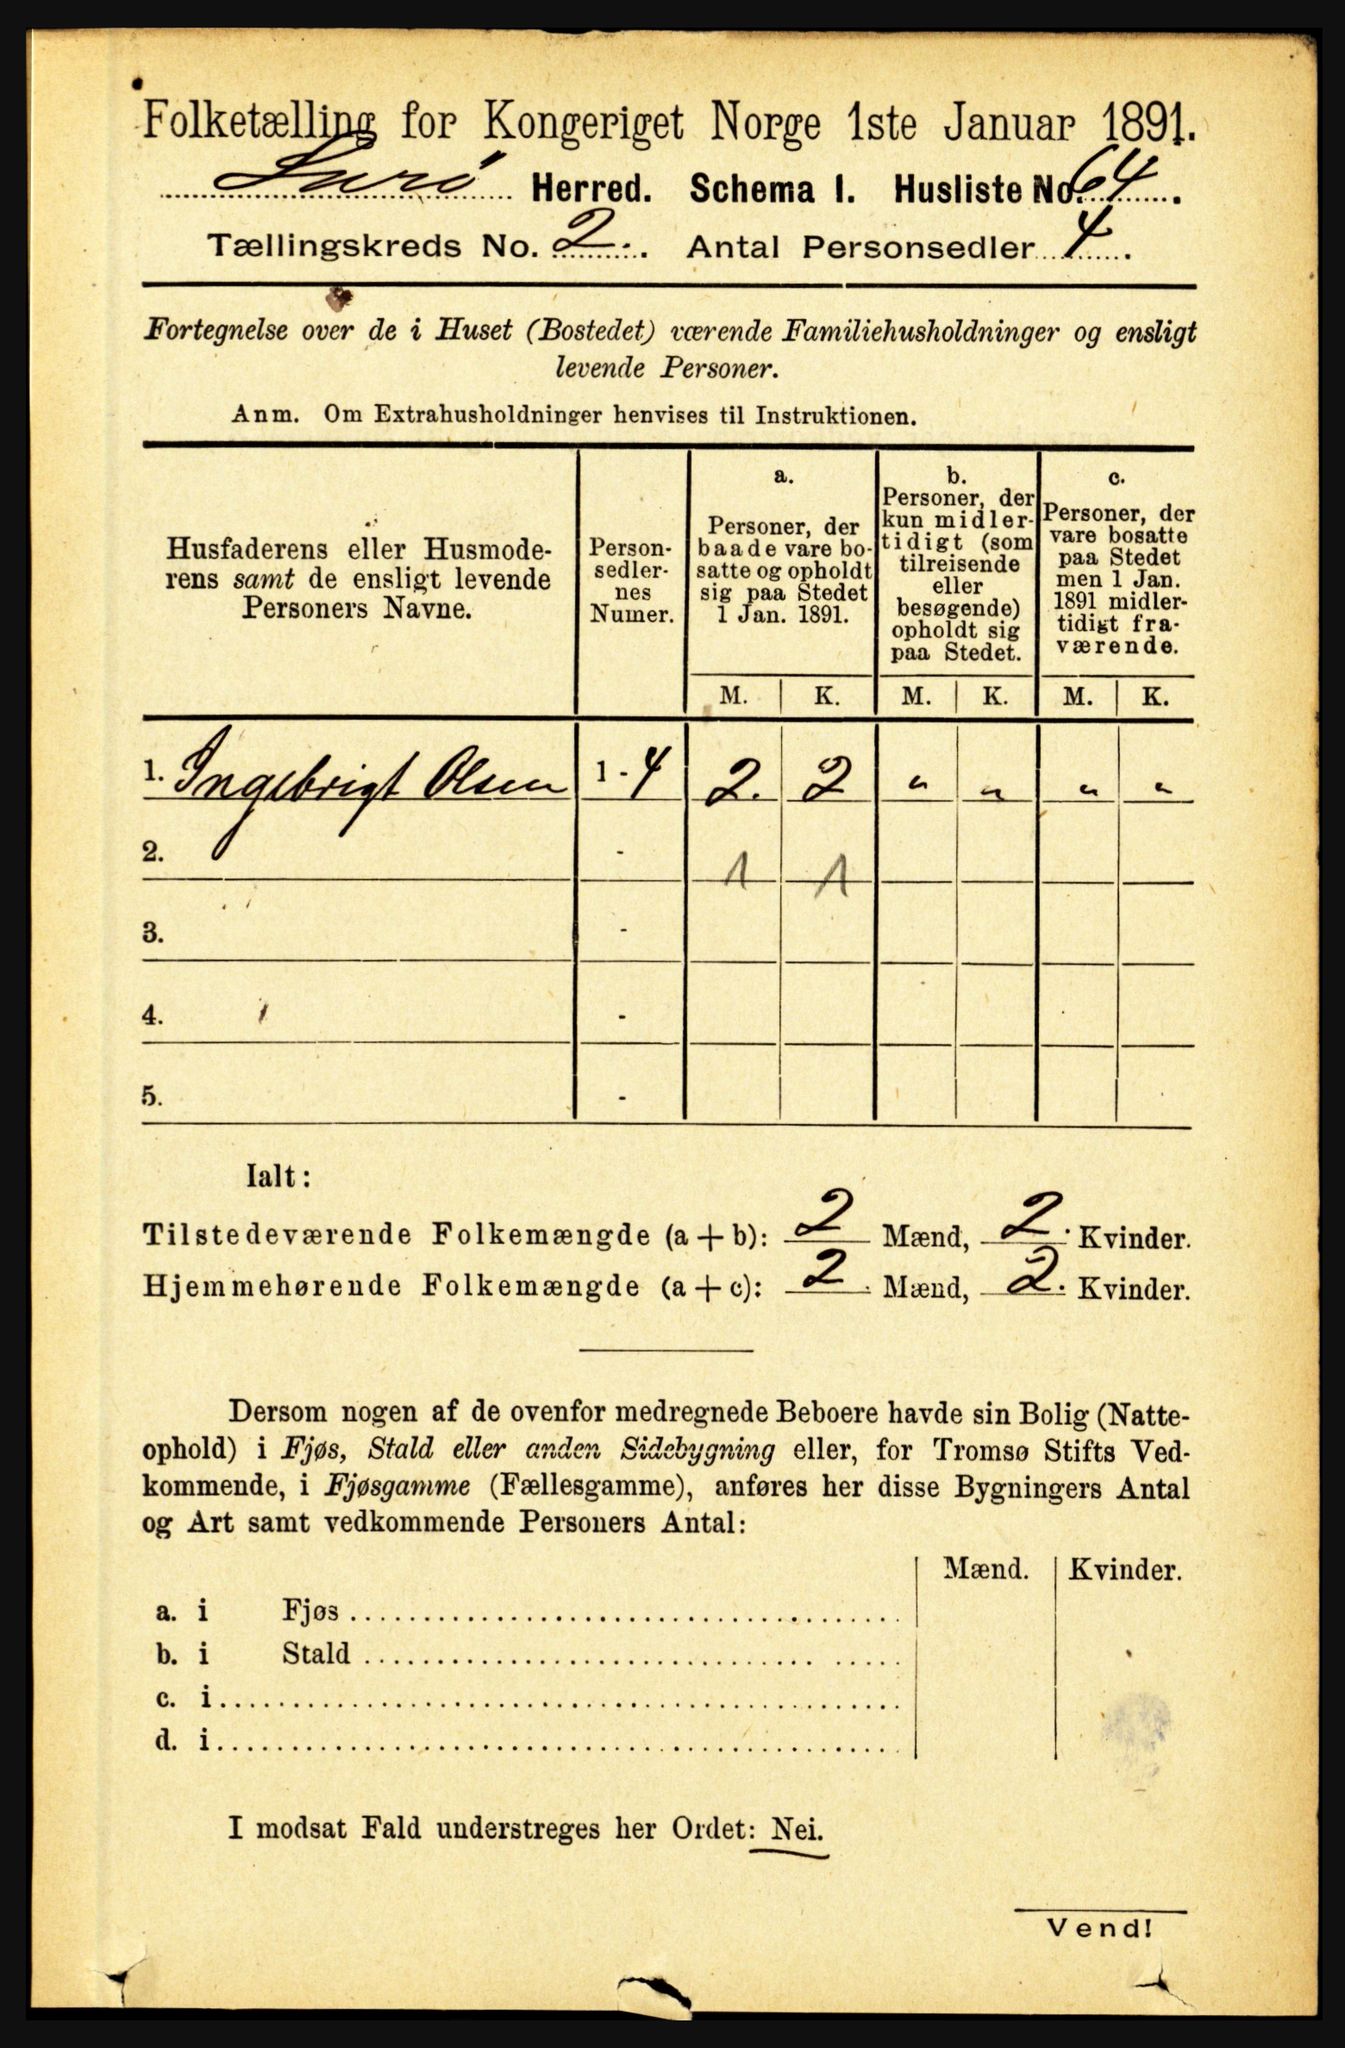 Folketælling for Kongeriget Norge 1ste Januar 1891.
Lurø Herred. Schema I. Husliste No. 64.
Tællingskreds No. 2. Antal Personsedler 4.
Fortegnelse over de i Huset (Bostedet) værende Familiehusholdninger og ensligt
levende Personer.
Anm. Om Extrahusholdninger henvises til Instruktionen.
Husfaderens eller Husmode-
rens samt de ensligt levende
Personers Navne.
Person-
sedler-
nes
Numer.
a.
Personer, der
baade vare bo-
satte og opholdt
sig paa Stedet
1 Jan. 1891.
b.
Personer, der
kun midler-
tidigt (som
tilreisende
eller
besøgende)
opholdt sig
paa Stedet.
c.
Personer, der
vare bosatte
paa Stedet
men 1 Jan.
1891 midler-
tidigt fra-
værende.
M. K. M. K. M. K.
1. Ingebrigt Olsen 1 - 4 2. 2 " " " "
2. - 1 1
3. -
4. -
5. -
Ialt:
Tilstedeværende Folkemængde (a + b): 2 Mænd, 2. Kvinder.
Hjemmehørende Folkemængde (a + c): 2. Mænd, 2. Kvinder.
Dersom nogen af de ovenfor medregnede Beboere havde sin Bolig (Natte-
ophold) i Fjøs, Stald eller anden Sidebygning eller, for Tromsø Stifts Ved-
kommende, i Fjøsgamme (Fællesgamme), anføres her disse Bygningers Antal
og Art samt vedkommende Personers Antal:
Mænd. Kvinder.
a. i Fjøs
b. i Stald
c. i
d. i
I modsat Fald understreges her Ordet: Nei.
Vend!